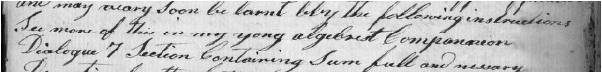 and may veary soon be larnt by the following instructions
See more of this in my yong algebrest Compannion
Dialogue 7 Section Containing Sum full and nessary